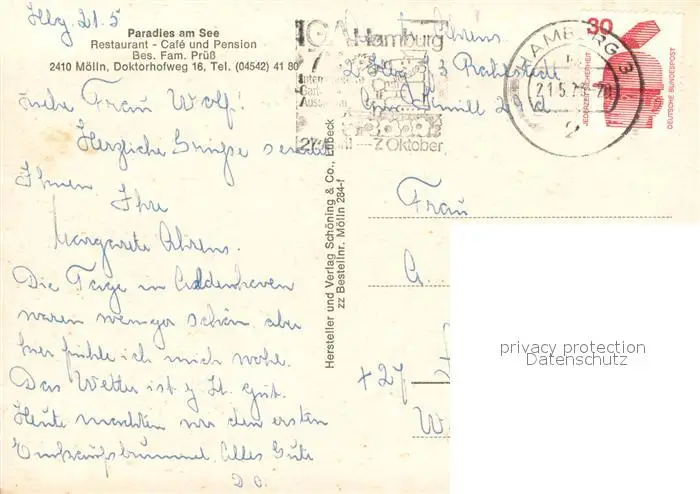 Hbg 21.5
Paradies am See
Restaurant - Café und Pension
Bes. Fam. Prüß
2410 Mölln, Doktorhofweg 16, Tel. (04542) 41 80
Liebe Frau Wolf!
Herzliche Grüsse sendet
Ihnen Ihre
Margarete Ahrens.
Die Tage in
waren weniger schön, aber
hier fühle ich mich wohl.
Das Wetter ist z. Zt. gut.
Heute machten wir den ersten
Einkaufsbummel. Alles Gute
D.O.
Hersteller und Verlag Schöning & Co., Lübeck
zz Bestellnr. Mölln 284-f
IGA Hamburg
7. Oktober
Ahrens
2 Hbg 73 Rahlstedt
HAMBURG 3
21.5.73-20
2
30
JEDERZEIT SICHERHEIT
DEUTSCHE BUNDESPOST
Frau
+27
W
privacy protection
Datenschutz